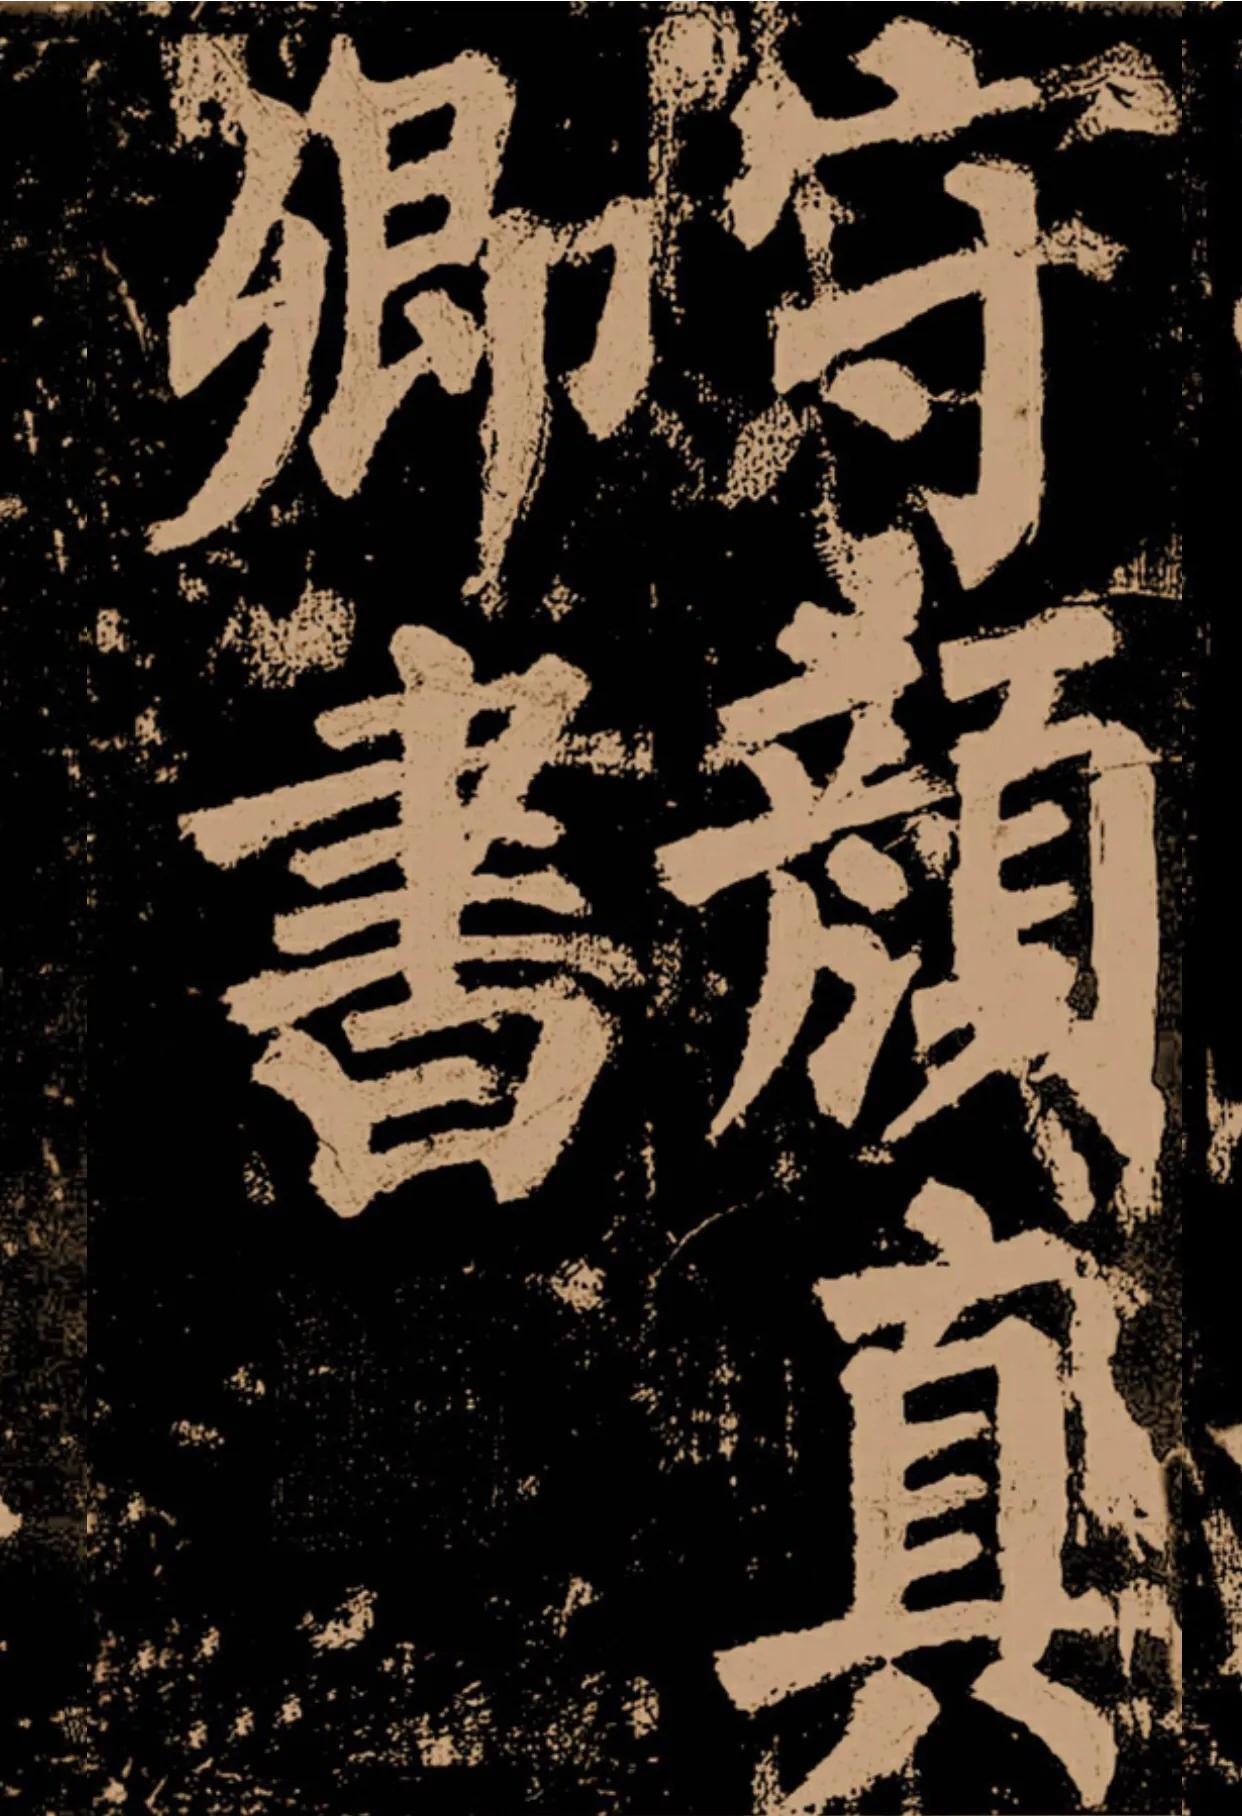 守顏真
卿書